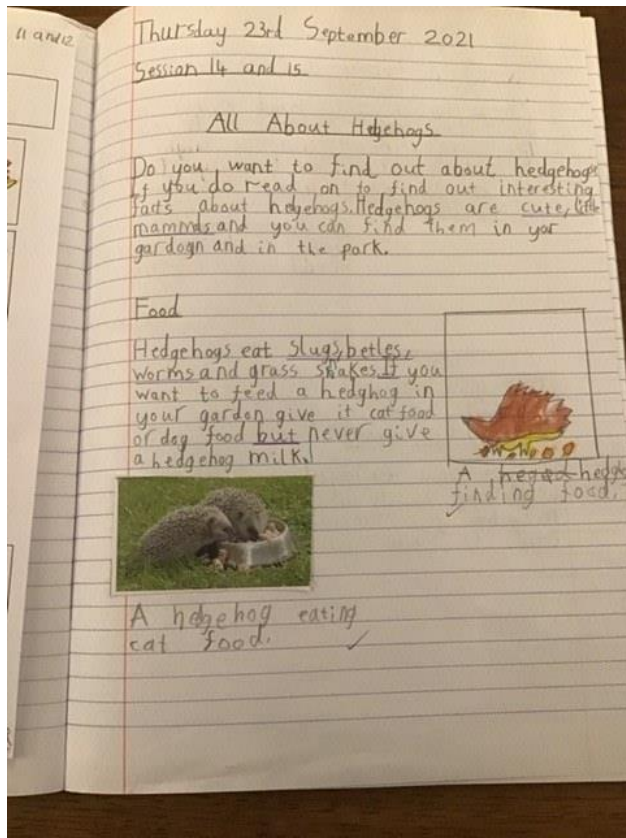 11 and 12
Thursday 23rd September 2021
Session 14 and 15
All About Hedgehogs
Do you want to find out about hedgehogs
If you do read on to find out interesting
facts about hdgehogs. Hedgehogs are cute, little
mammals and you can find them in yor
gardogn and in the park.
Food
Hedgehogs eat slugs, betles,
worms and grass snakes. If you
want to feed a hedghog in
your garden give it cat food
or dog food but never give
a hedgehog milk.
A hedgehog eating
cat food.
A hegod hedgh
finding food.